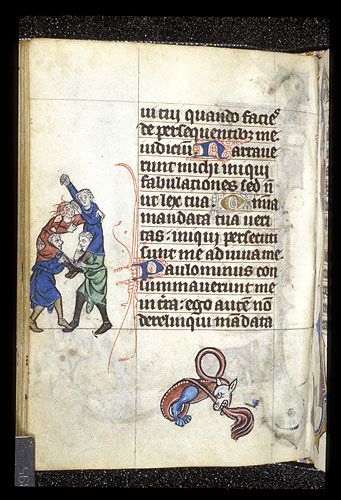 tui quando facies
de persequentibz me
iudiciu Narraue
runt michi iniqui
fabulationes sed n̄
ut lex tua. Omia
mandata tua ueri
tas. iniqui persecuti
sunt me adiuua me.
Paulominus con
summauerunt me
in tr̄a. ego aute nō
dereliqui mādata